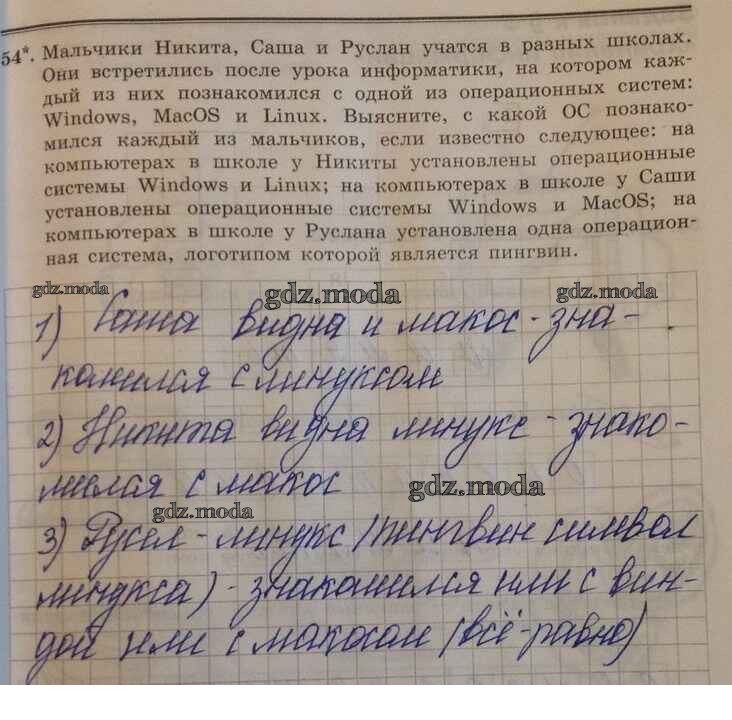 54*. Мальчики Никита, Саша и Руслан учатся в разных школах.
Они встретились после урока информатики, на котором каж-
дый из них познакомился с одной из операционных систем:
Windows, MacOS и Linux. Выясните, с какой ОС познако-
мился каждый из мальчиков, если известно следующее: на
компьютерах в школе у Никиты установлены операционные
системы Windows и Linux; на компьютерах в школе у Саши
установлены операционные системы Windows и MacOS; на
компьютерах в школе у Руслана установлена одна операцион-
ная система, логотипом которой является пингвин.
gdz.moda gdz.moda gdz.moda
1) Саша видна и макос - зна-
комился с линуксом
2) Никита видна линукс - знако-
милая с макос
gdz.moda
gdz.moda
3) Русел - линукс (пингвин символ
линукса) - знакомился или с вин-
дой или с макосом (всё-равно)